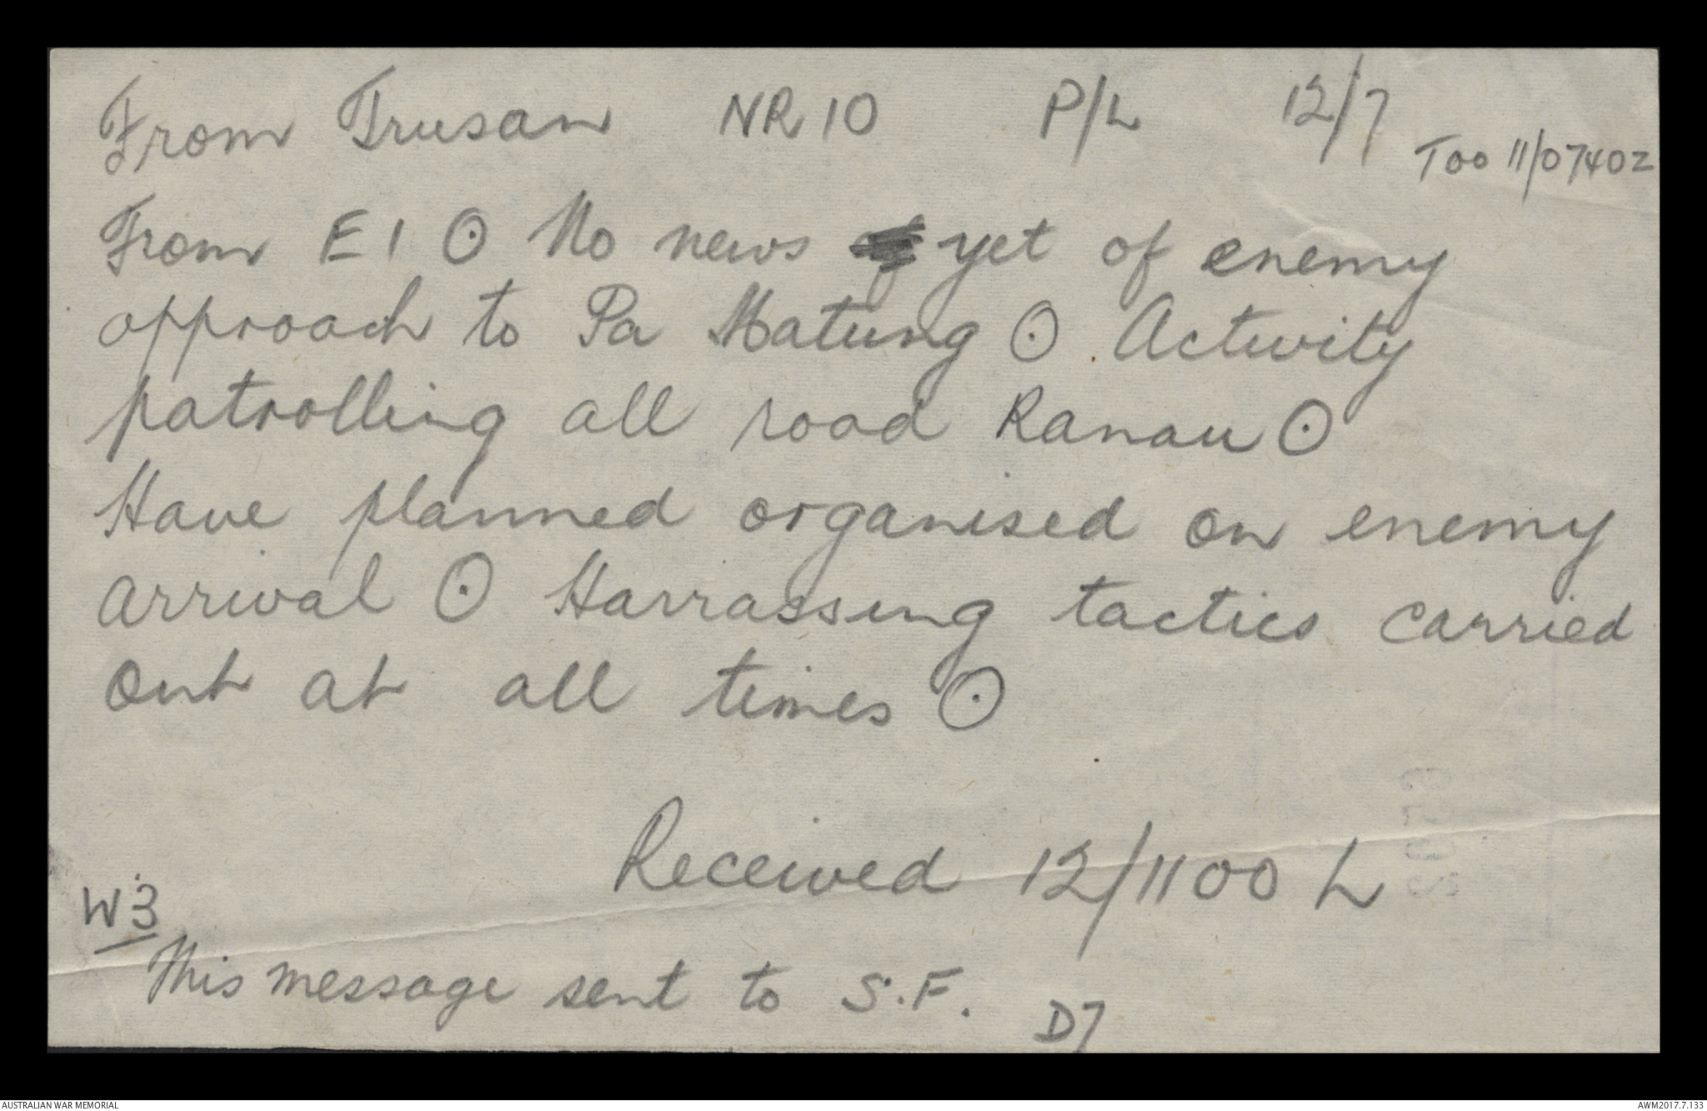 From Trusan NR 10 P/L 12/7
Too 11/0740z
From E1 ⊙ No news yet of enemy
approach to Pa Matung ⊙ Activity
patrolling all road Ranau ⊙
Have planned organised on enemy
arrival ⊙ Harrassing tactics carried
out at all times ⊙
Received 12/1100 L
W3
This message sent to S.F. D7
AUSTRALIAN WAR MEMORIAL AWM2017.7.133